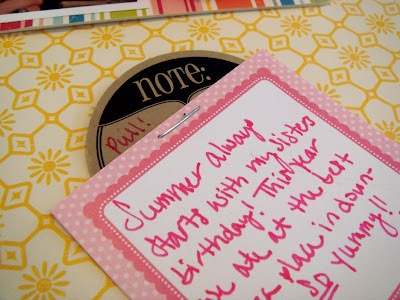 NOTE:
Pull!
Summer always
starts with my sisters
birthday! This year
we ate at the best
place in down-
SD yummy!!